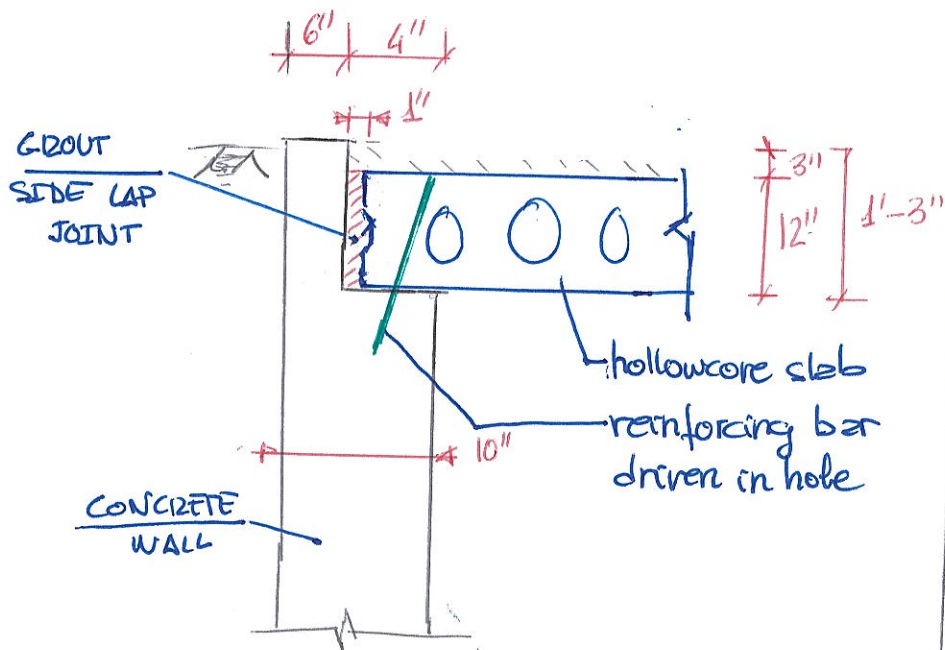 6" 4"
1"
GROUT
SIDE LAP
JOINT
3"
12"
1'-3"
hollowcore slab
reinforcing bar
driven in hole
10"
CONCRETE
WALL